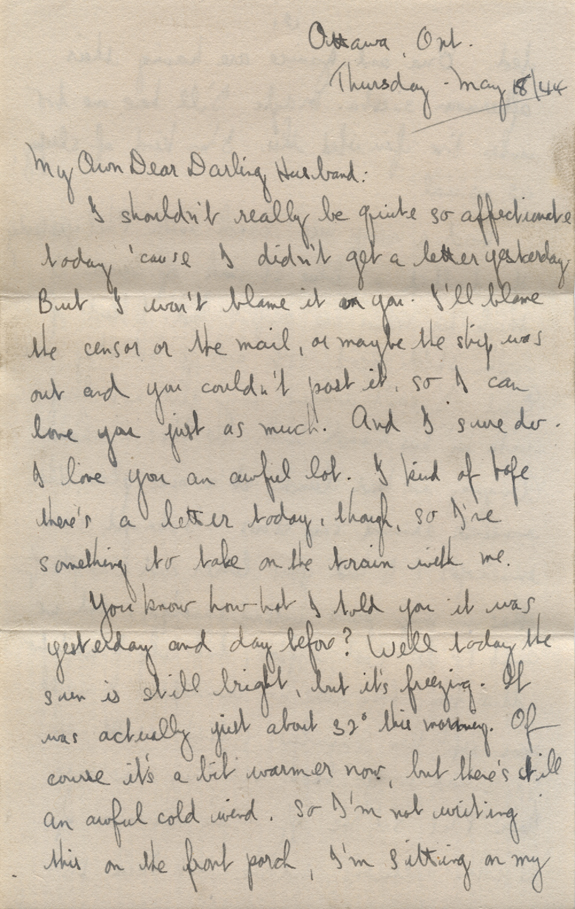 Ottawa, Ont.
Thursday - May 18/44
My Own Dear Darling Husband:
I shouldn't really be quite so affectionate
today 'cause I didn't get a letter yesterday.
But I won't blame it on you. I'll blame
the censor or the mail, or maybe the ship was
out and you couldn't post it, so I can
love you just as much. And I sure do.
I love you an awful lot. I kind of hope
there's a letter today, though, so I've
something to take on the train with me.
You know how hot I told you it was
yesterday and day before? Well today the
sun is still bright, but it's freezing. It
was actually just about 32° this morning. Of
course it's a bit warmer now, but there's still
an awful cold wind. So I'm not writing
this on the front porch, I'm sitting on my